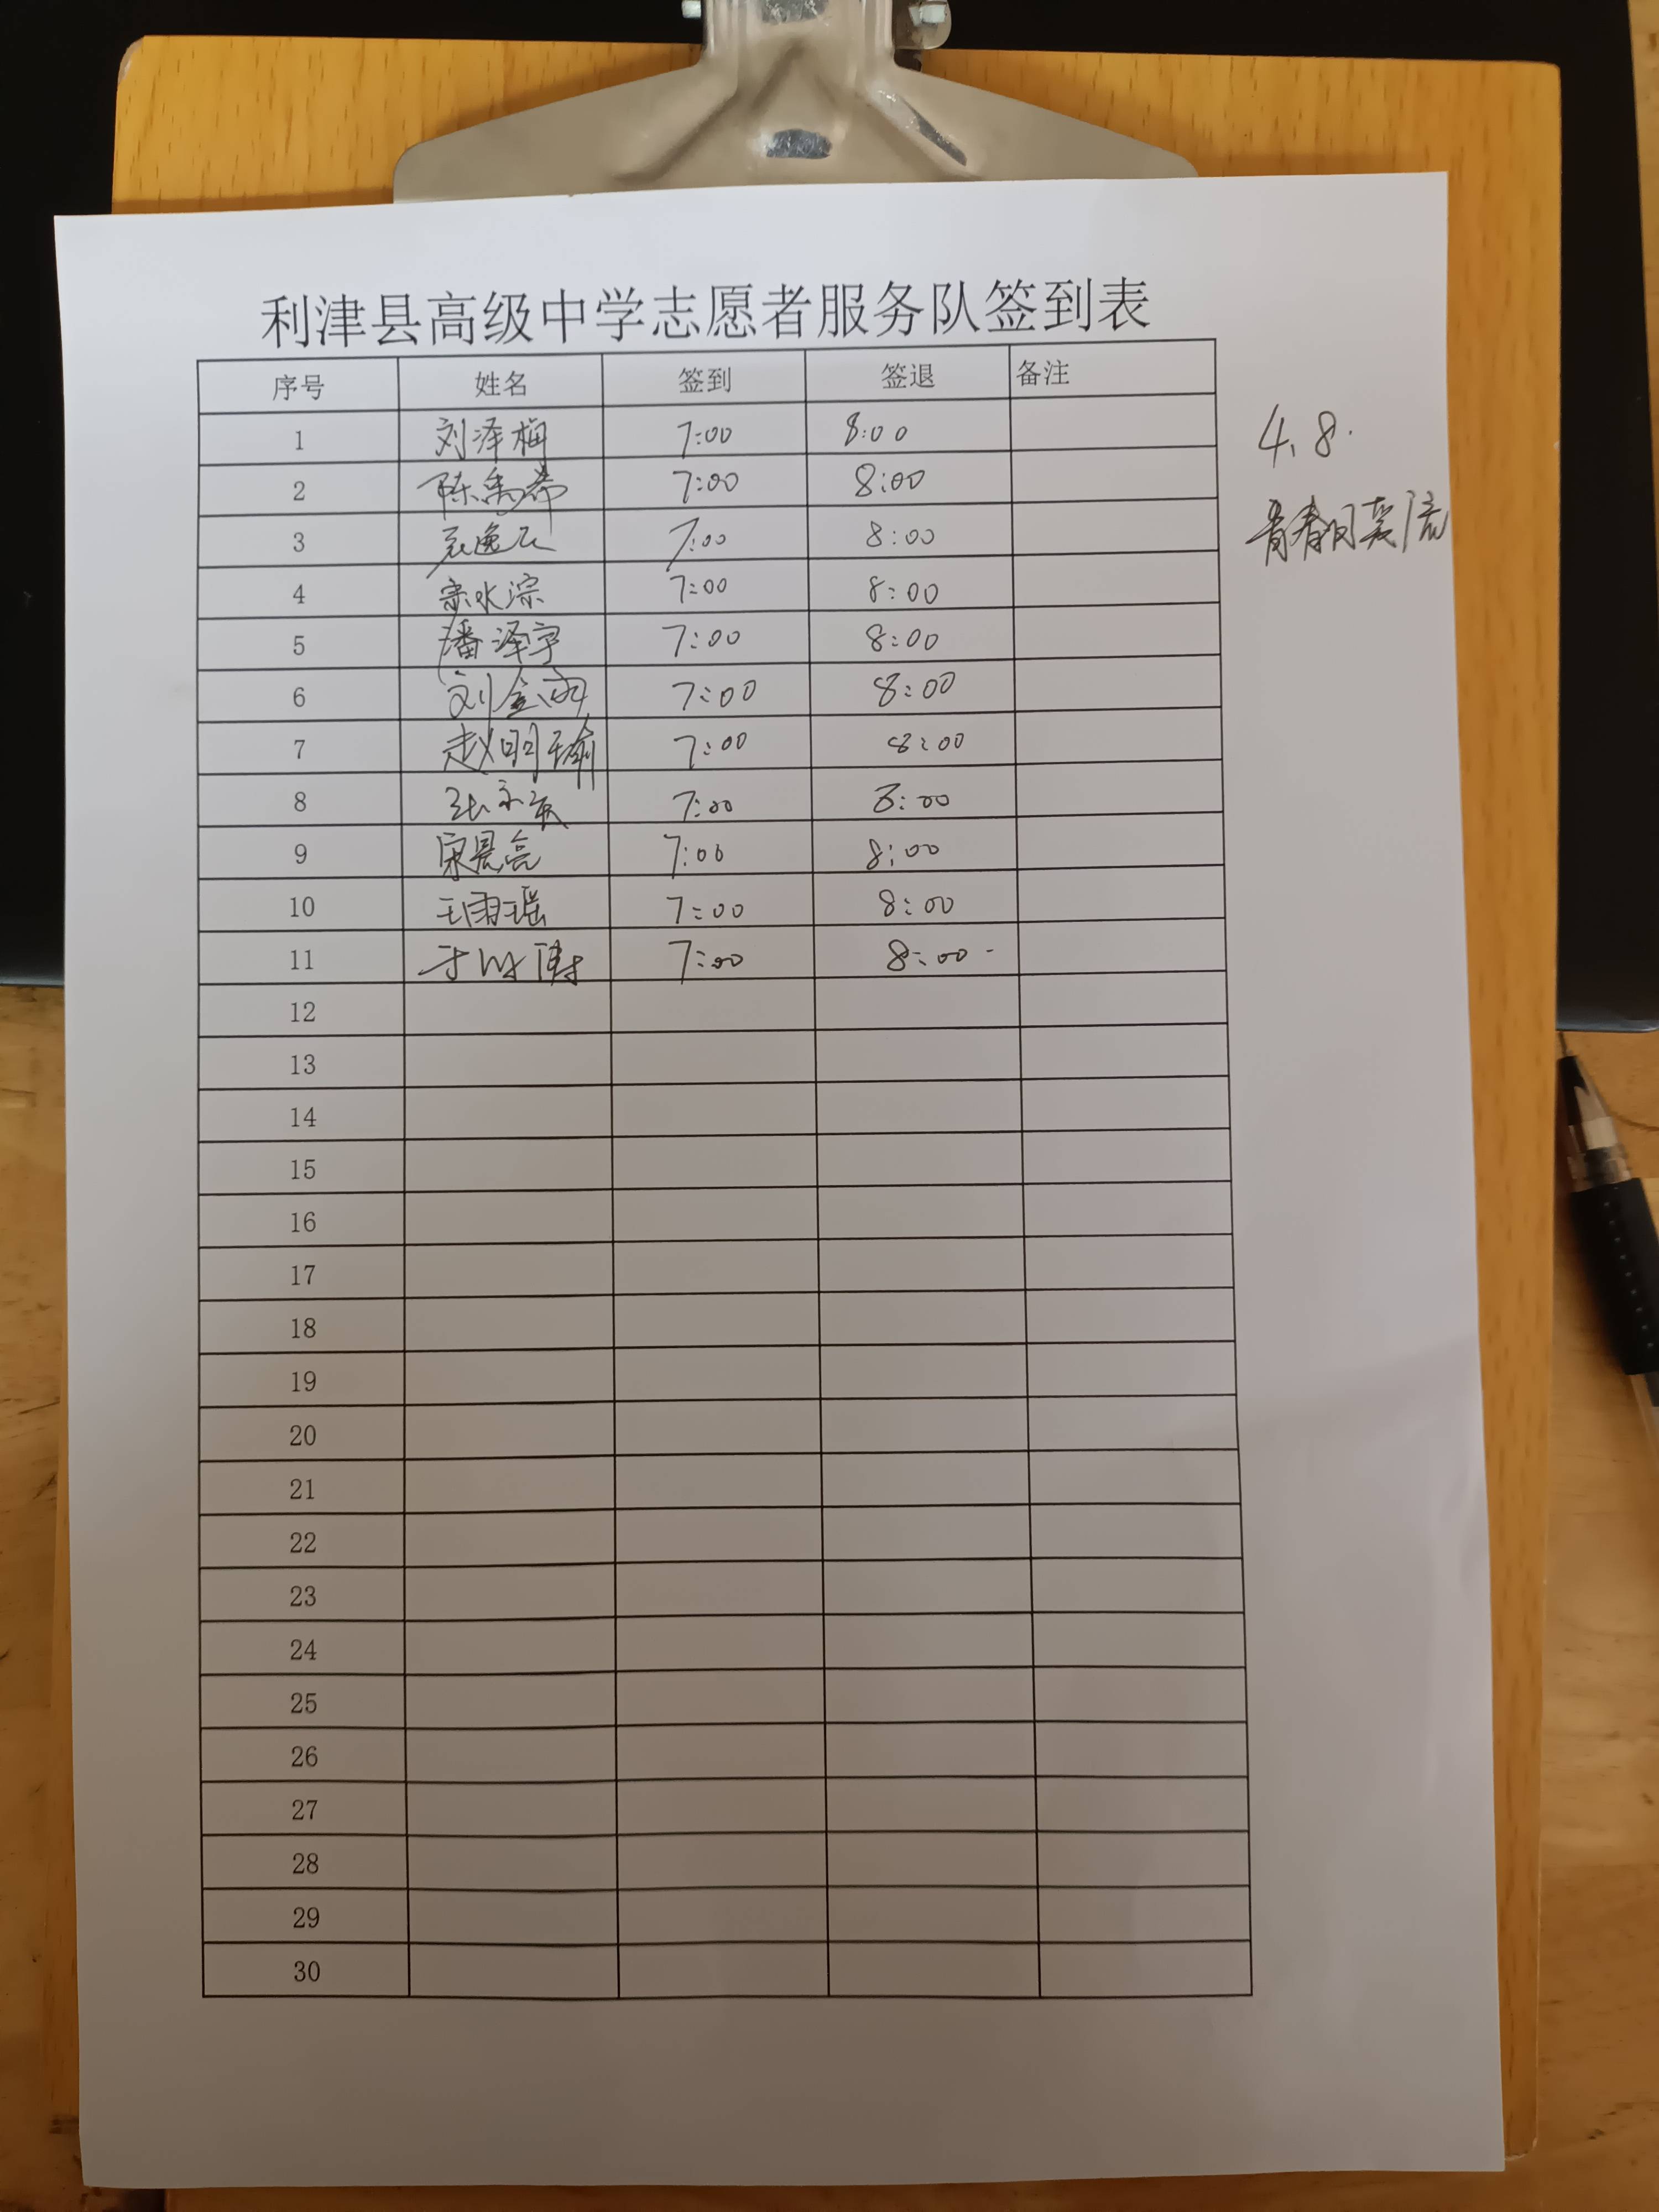 利津县高级中学志愿者服务队签到表
序号 姓名 签到 签退 备注
1 刘泽桐 7:00 8:00
4.8.
2 陈禹希 7:00 8:00
青春
3 7:00 8:00
4 7:00 8:00
5 潘泽宇 7:00 8:00
6 刘金雨 7:00 8:00
7 赵明瑜 7:00 8:00
8 7:00 8:00
9 宋晨亮 7:00 8:00
10 王雨瑶 7:00 8:00
11 7:00 8:00
12
13
14
15
16
17
18
19
20
21
22
23
24
25
26
27
28
29
30